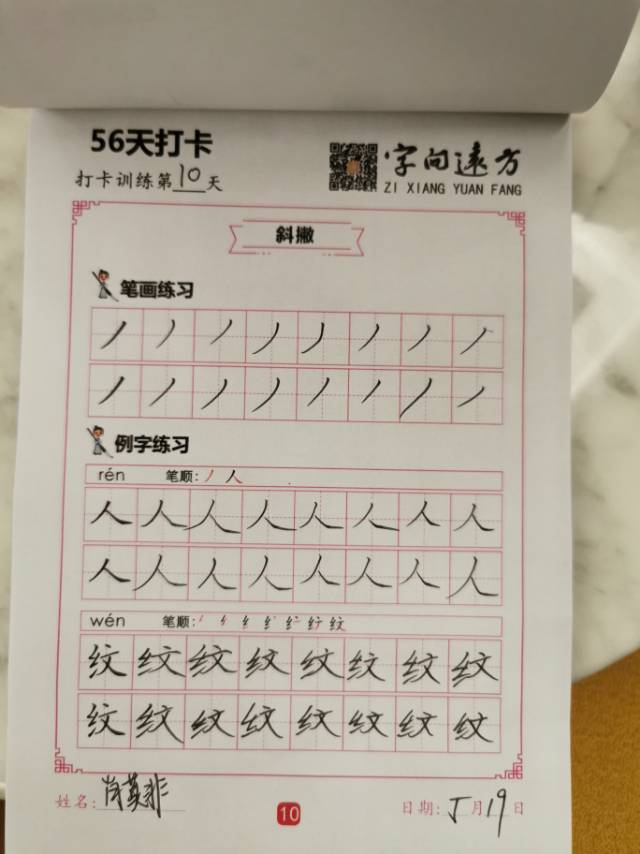 56天打卡
打卡训练第10天
字向远方
ZI XIANG YUAN FANG
斜撇
笔画练习
丿丿丿丿丿丿丿丿
丿丿丿丿丿丿丿丿
例字练习
rén 笔顺:丿人
人人人人人人人人
人人人人人人人人
wén 笔顺:
纹纹纹纹纹纹纹纹
纹纹纹纹纹纹纹纹
姓名:肖英非
10
日期:5月19日